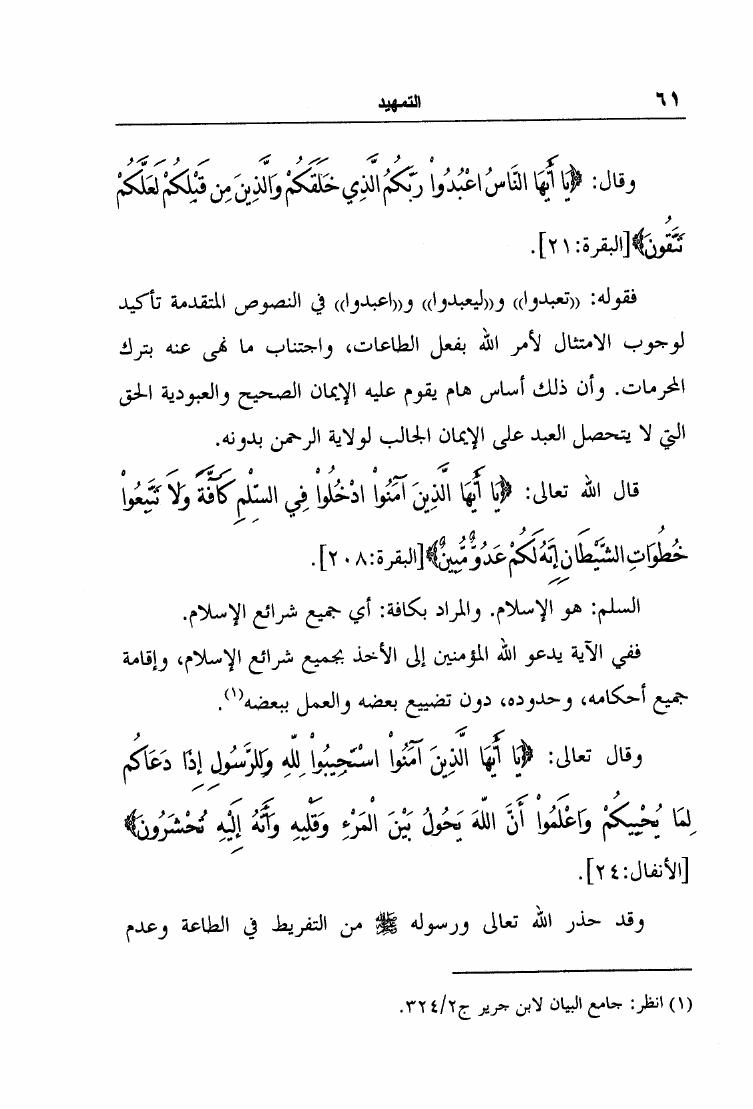 ٦١ التمهيد
وقال: ﴿يَا أَيُّهَا النَّاسُ اعْبُدُواْ رَبَّكُمُ الَّذِي خَلَقَكُمْ وَالَّذِينَ مِن قَبْلِكُمْ لَعَلَّكُمْ
تَتَّقُونَ﴾[البقرة:٢١].
فقوله: ((تعبدوا)) و((ليعبدوا)) و((اعبدوا)) في النصوص المتقدمة تأكيد
لوجوب الامتثال لأمر الله بفعل الطاعات، واجتناب ما نهى عنه بترك
المحرمات. وأن ذلك أساس هام يقوم عليه الإيمان الصحيح والعبودية الحق
التي لا يتحصل العبد على الإيمان الجالب لولاية الرحمن بدونه.
قال الله تعالى: ﴿يَا أَيُّهَا الَّذِينَ آمَنُواْ ادْخُلُواْ فِي السِّلْمِ كَآفَّةً وَلاَ تَتَّبِعُواْ
خُطُوَاتِ الشَّيْطَانِ إِنَّهُ لَكُمْ عَدُوٌّ مُّبِينٌ﴾[البقرة:٢٠٨].
السلم: هو الإسلام. والمراد بكافة: أي جميع شرائع الإسلام.
ففي الآية يدعو الله المؤمنين إلى الأخذ بجميع شرائع الإسلام، وإقامة
جميع أحكامه، وحدوده، دون تضييع بعضه والعمل ببعضه(١).
وقال تعالى: ﴿يَا أَيُّهَا الَّذِينَ آمَنُواْ اسْتَجِيبُواْ لِلّهِ وَلِلرَّسُولِ إِذَا دَعَاكُم
لِمَا يُحْيِيكُمْ وَاعْلَمُواْ أَنَّ اللّهَ يَحُولُ بَيْنَ الْمَرْءِ وَقَلْبِهِ وَأَنَّهُ إِلَيْهِ تُحْشَرُونَ﴾
[الأنفال:٢٤].
وقد حذر الله تعالى ورسوله ﷺ من التفريط في الطاعة وعدم
(١) انظر: جامع البيان لابن جرير ج٣٢٤/٢.